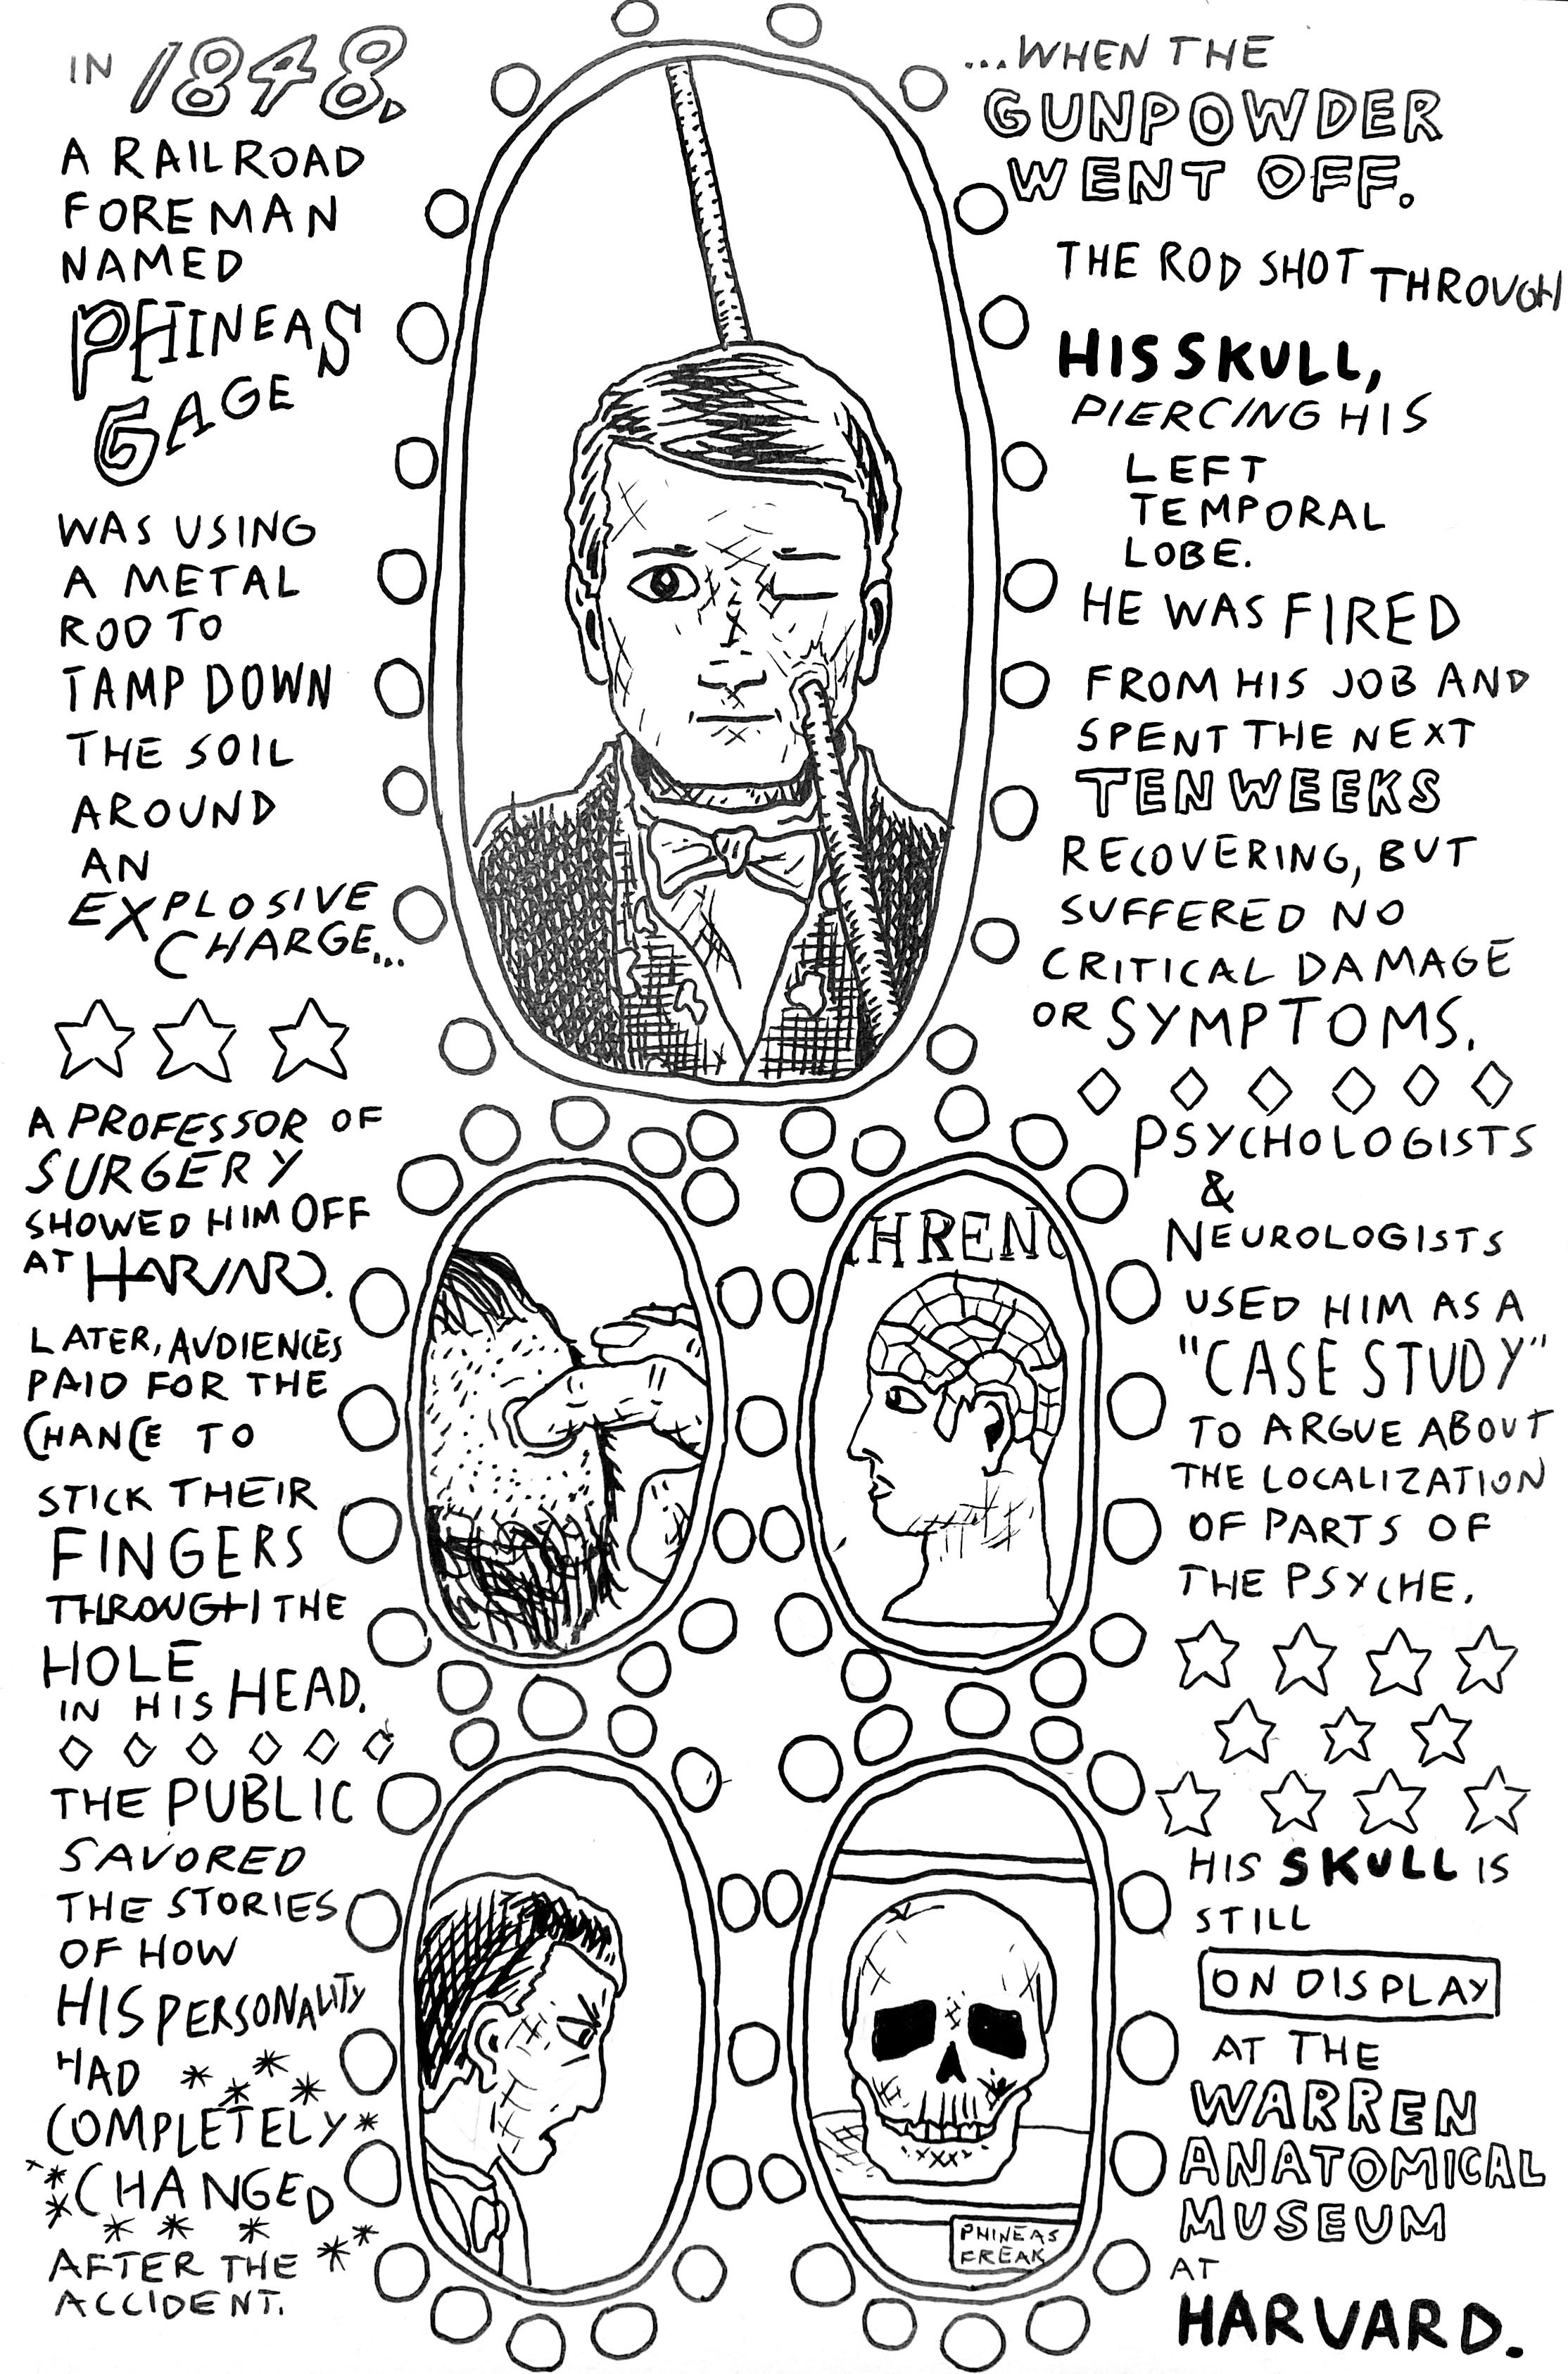 IN 1848,
A RAILROAD
FOREMAN
NAMED
PHINEAS
GAGE
WAS USING
A METAL
ROD TO
TAMP DOWN
THE SOIL
AROUND
AN
EXPLOSIVE
CHARGE...
...WHEN THE
GUNPOWDER
WENT OFF.
THE ROD SHOT THROUGH
HIS SKULL,
PIERCING HIS
LEFT
TEMPORAL
LOBE.
HE WAS FIRED
FROM HIS JOB AND
SPENT THE NEXT
TEN WEEKS
RECOVERING, BUT
SUFFERED NO
CRITICAL DAMAGE
OR SYMPTOMS.
A PROFESSOR OF
SURGERY
SHOWED HIM OFF
AT HARVARD.
LATER, AUDIENCES
PAID FOR THE
CHANCE TO
STICK THEIR
FINGERS
THROUGH THE
HOLE
IN HIS HEAD.
HRENO
PSYCHOLOGISTS
&
NEUROLOGISTS
USED HIM AS A
"CASE STUDY"
TO ARGUE ABOUT
THE LOCALIZATION
OF PARTS OF
THE PSYCHE.
THE PUBLIC
SAVORED
THE STORIES
OF HOW
HIS PERSONALITY
HAD
COMPLETELY
CHANGED
AFTER THE
ACCIDENT.
PHINEAS
FREAK
HIS SKULL IS
STILL
ON DISPLAY
AT THE
WARREN
ANATOMICAL
MUSEUM
AT
HARVARD.